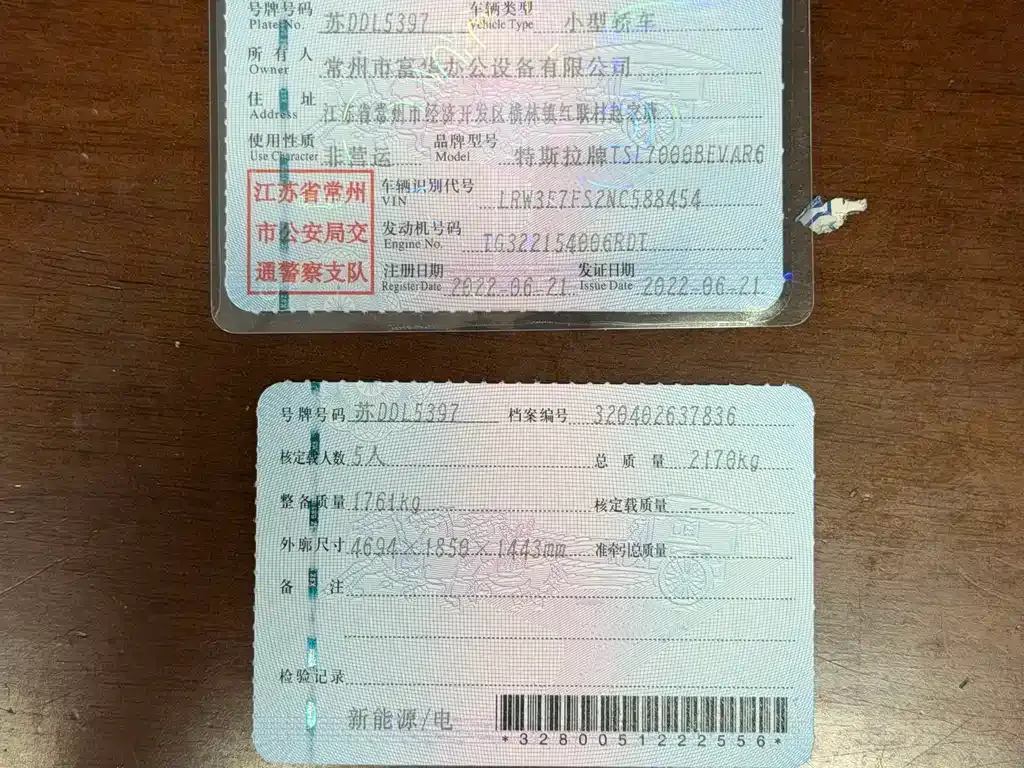 号牌号码 苏DDL5397 车辆类型 小型轿车
Plate No. Vehicle Type
所有人 常州市富华办公设备有限公司
Owner
住址 江苏省常州市经济开发区横林镇红联村赵家塘
Address
使用性质 非营运 品牌型号 特斯拉牌TSL7000BEVAR6
Use Character Model
江苏省常州
市公安局交
通警察支队
车辆识别代号 LRW3E7FS2NC588454
VIN
发动机号码 TG322154006RDT
Engine No.
注册日期 2022.06.21 发证日期 2022.06.21
Register Date Issue Date
号牌号码 苏DDL5397 档案编号 320402637836
核定载人数 5人 总质量 2170kg
整备质量 1761kg 核定载质量 --
外廓尺寸 4694×1850×1443mm 准牵引总质量 --
备注
检验记录
新能源/电
*3280051222556*